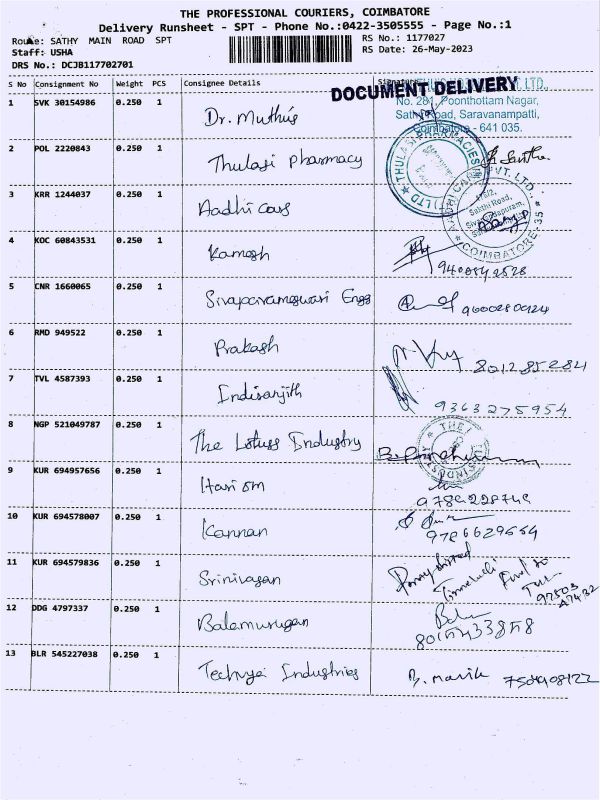 THE PROFESSIONAL COURIERS, COIMBATORE
Delivery Runsheet - SPT - Phone No.:0422-3505555 - Page No.:1
Route: SATHY MAIN ROAD SPT
RS No.: 1177027
Staff: USHA
RS Date: 26-May-2023
DRS No.: DCJB117702701
S No Consignment No Weight PCS Consignee Details Signature
DOCUMENT DELIVERY
No. 281, Poonthottam Nagar,
Sathy Road, Saravanampatti,
Coimbatore - 641 035.
1 SVK 30154986 0.250 1 Dr. Muthus
2 POL 2220843 0.250 1 Thulasi Pharmacy
THULASI PHARMACIES
3 KRR 1244037 0.250 1 Aadhi Cars
AADHI CARS PVT. LTD.
Sathi Road,
COIMBATORE-35
4 KOC 60843531 0.250 1 Kamesh
5 CNR 1660065 0.250 1 Sivaparameswari Engg 9600280924
6 RMD 949522 0.250 1 Prakash 8012852284
7 TVL 4587393 0.250 1 Indiranjith 9363275954
8 NGP 521049787 0.250 1 The Lotuss Industry
THE
9 KUR 694957656 0.250 1 Hari om
10 KUR 694578007 0.250 1 Kannan
11 KUR 694579836 0.250 1 Srinivasan
12 DDG 4797337 0.250 1 Balamurugan
13 BLR 545227038 0.250 1 Techvye Industries